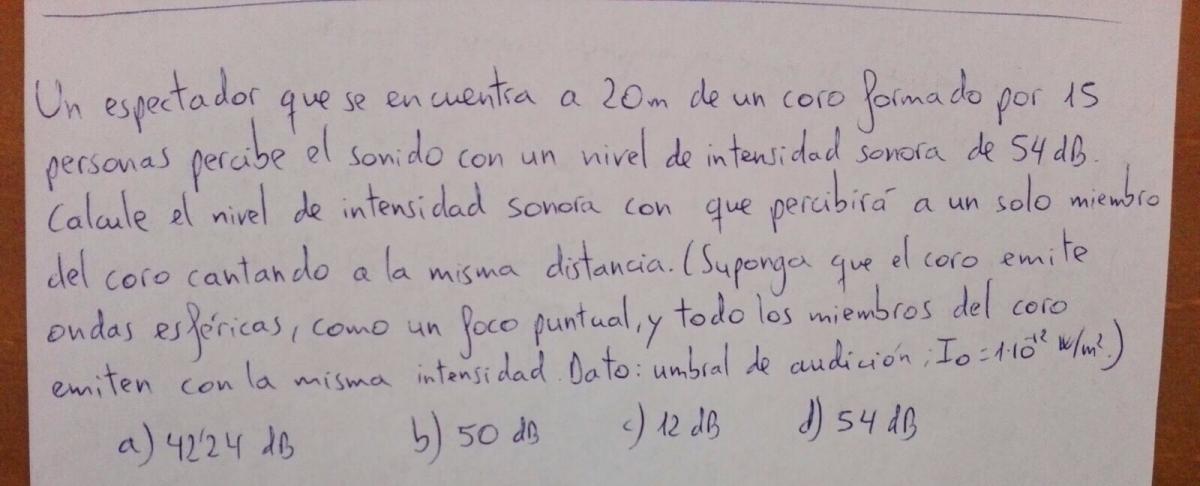 Un espectador que se encuentra a 20m de un coro formado por 15
personas percibe el sonido con un nivel de intensidad sonora de 54 dB.
Calcule el nivel de intensidad sonora con que percibirá a un solo miembro
del coro cantando a la misma distancia. (Suponga que el coro emite
ondas esféricas, como un foco puntual, y todo los miembros del coro
emiten con la misma intensidad. Dato: umbral de audición; I₀ = 1·10⁻¹² W/m².)
a) 42'24 dB b) 50 dB c) 12 dB d) 54 dB